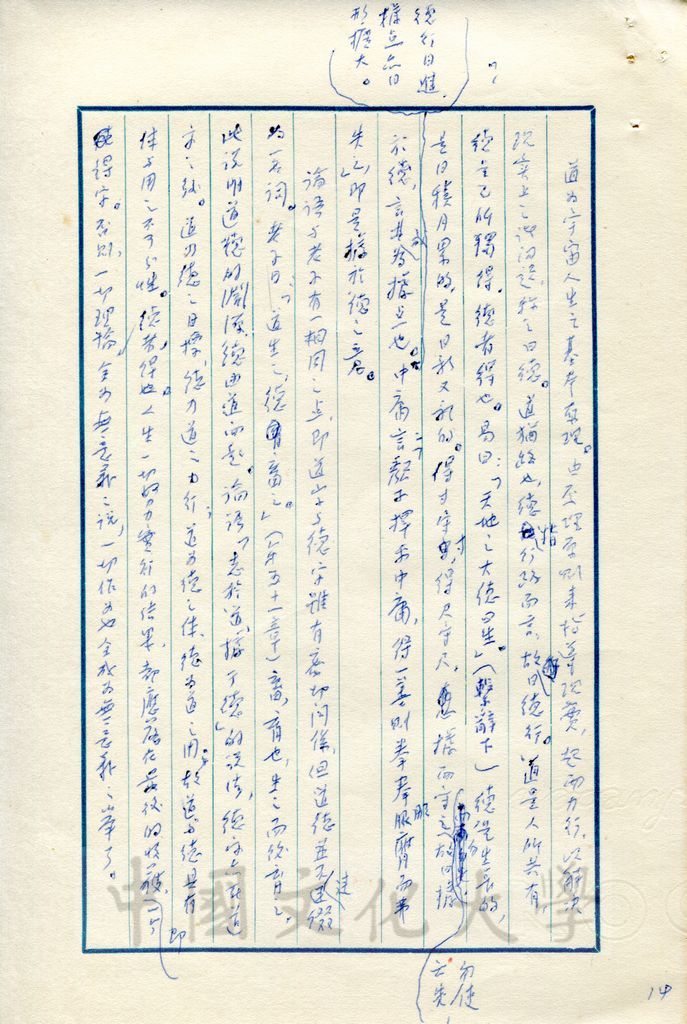 道為宇宙人生之基本原理。由原理原則來指導現實,起而力行,以解決
現實上之諸問題,称之曰德。道猶路也,德指行路而言,故曰德行。道是人所共有,
德是己所獨得。德者得也。易曰:「天地之大德曰生。」(繫辭下)德是生長的,
是日積月累的,是日新又新的。得寸守寸,得尺守尺,據而守之,勿使亡失
德行日進,據点亦日形擴大。
於德,言其為據点也。中庸言:「顏子擇乎中庸,得一善則拳拳服膺而弗
失之」,即是據於德之意。
論語与老子有一相同之点,即道字与德字雖有密切関係,但道德並不連綴
為一名詞。老子曰:「道生之,德畜之。」(第五十一章)畜,育也,生之而後育之。
此說明道德的淵源,德由道而起。論語「志於道,據于德」的說法,德字亦在道
字之後。道乃德之目標,德乃道之力行;道為德之体,德為道之用,故道与德具有
体与用之不可分性。德者得也,人生一切努力實行的結果,都應落在最後的收穫,即一个
得字。否則,一切理論全為無意義之說,一切作為也全成為無意義之舉了。
14
中國文化大學